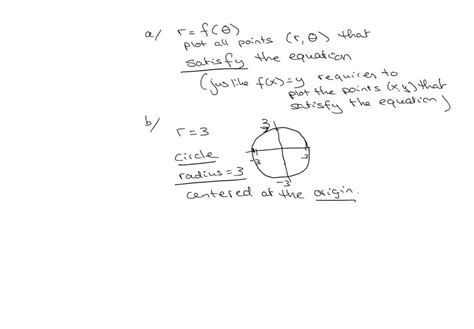 a/ r = f(θ)
plot all points (r, θ) that
satisfy the equation
(just like f(x) = y requires to
plot the points (x, y) that
satisfy the equation)
b/
r = 3
3
circle
-3
3
radius = 3
-3
centered at the origin.